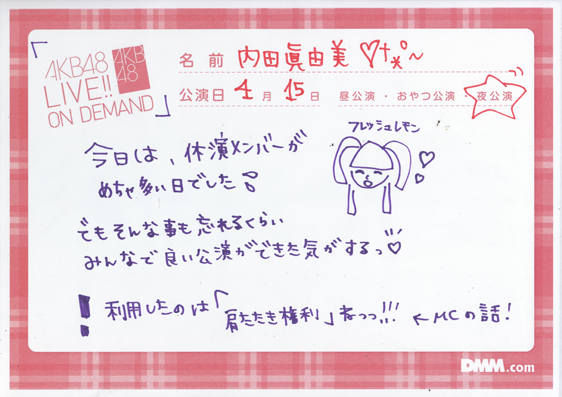 「AKB48
LIVE!!
ON DEMAND」
AKB
48
名前 内田眞由美♡
公演日 4月15日 昼公演・おやつ公演・夜公演
フレッシュレモン
今日は、休演メンバーが
めちゃ多い日でした
でもそんな事も忘れるくらい
みんなで良い公演ができた気がするっ♡
! 利用したのは「肩たたき権利」なっっ!!! ←MCの話!
DMM.com